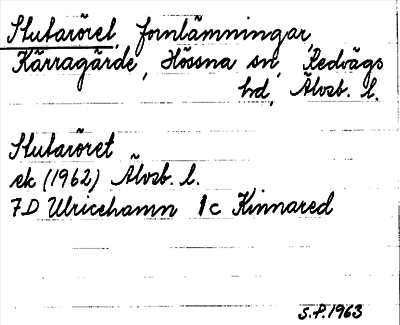 Slutaröret, fornlämningar,
Kärragärde, Hössna sn, Redvägs
hd, Älvsb. l.
Slutaröret
ek (1962) Älvsb. l.
7D Ulricehamn 1c Kinnared
S.P. 1963